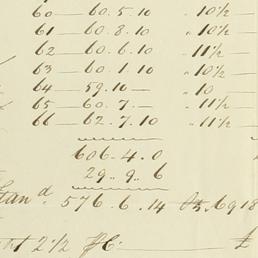 60 — 60. 5. 10 „ 10½ —
61 — 60. 8. 10 „ 10½ —
62 — 60. 6. 10 „ 11½ —
63 — 60. 1. 10 „ 10½ —
64 — 59. 10 — „ 10 —
65 — 60. 7. — „ 11½ —
66 — 62. 7. 10 „ 11½ —
606. 4. 0
29. 9. 6
576. 6. 14
2½ £